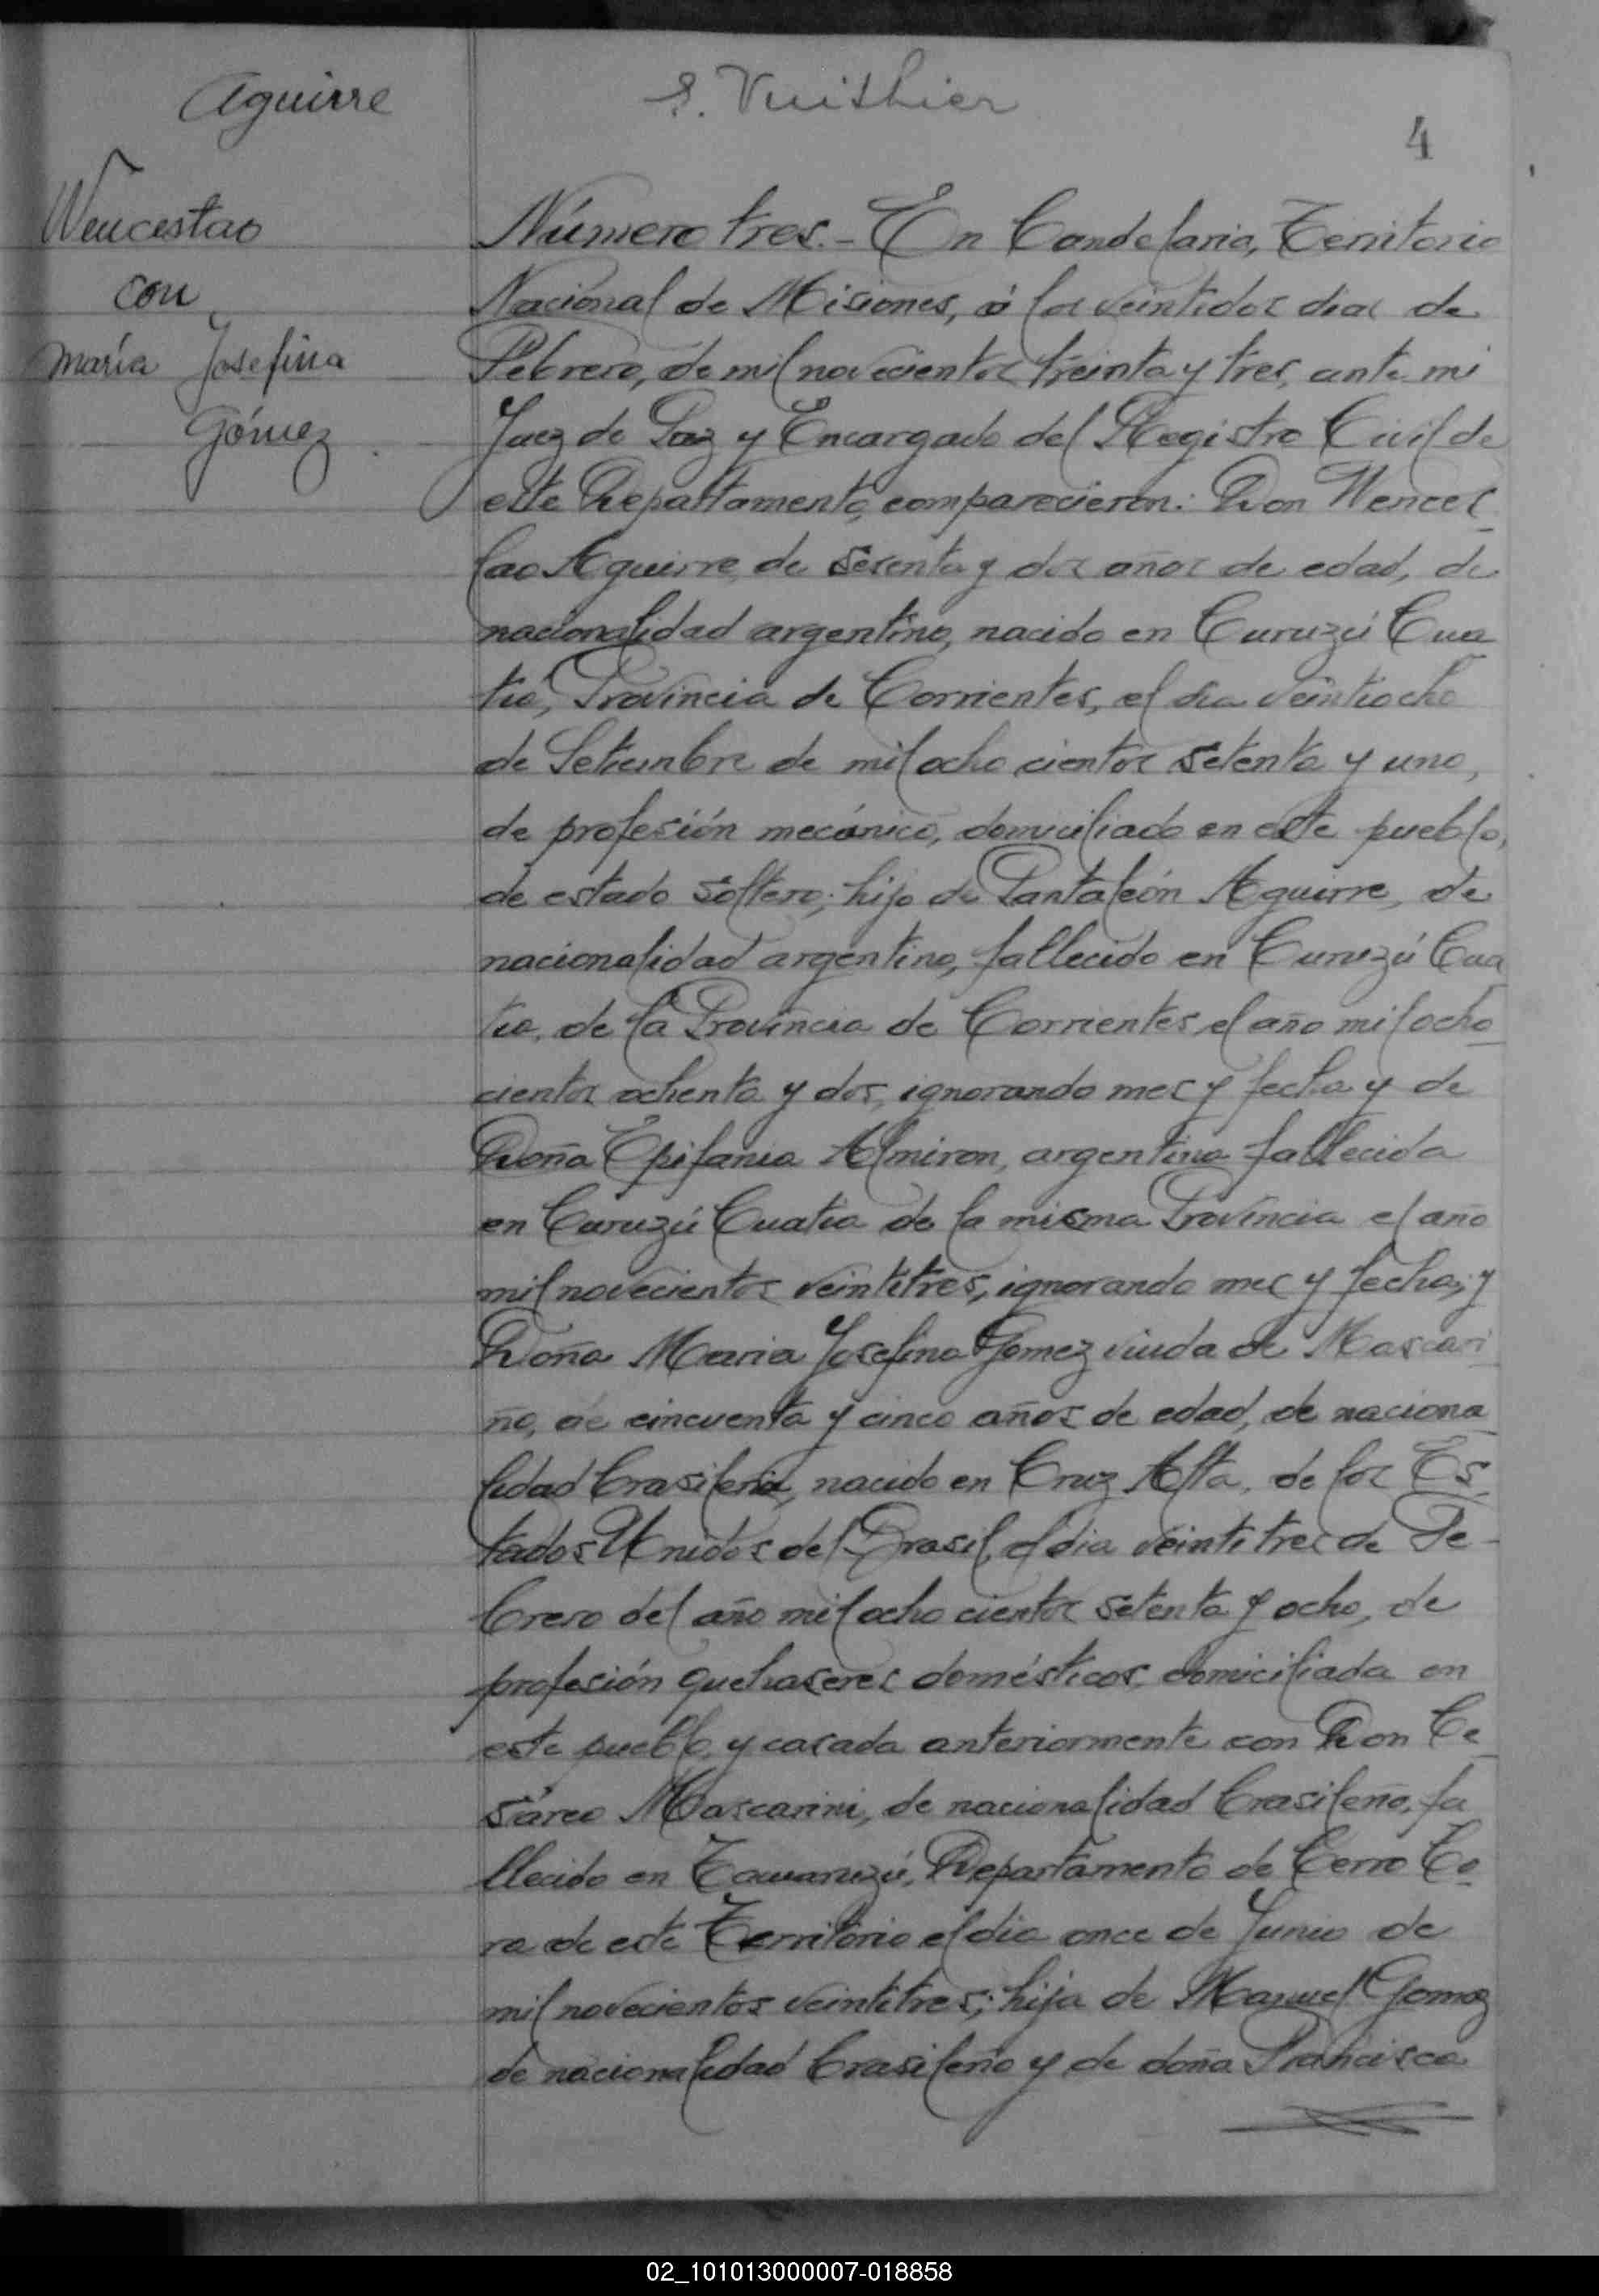 Aguirre
S. Vuithier
4
Wenceslao
con
María Josefina
Gómez
Número tres.- En Candelaria, Territorio
Nacional de Misiones, á los veintidos dias de
Febrero, de mil novecientos treinta y tres, ante mi
Juez de Paz y Encargado del Registro Civil de
este Departamento, comparecieron: Don Wences
lao Aguirre, de sesenta y dos años de edad, de
nacionalidad argentino, nacido en Curuzú Cua
tiá, Provincia de Corrientes, el dia veintiocho
de Setiembre de mil ocho cientos setenta y uno,
de profesión mecánico, domiciliado en este pueblo,
de estado soltero; hijo de Pantaleón Aguirre, de
nacionalidad argentino, fallecido en Curuzú Cua
tia, de la Provincia de Corrientes, el año mil ocho
cientos ochenta y dos, ignorando mes y fecha y de
Doña Epifania Almiron, argentina fallecida
en Curuzú Cuatia de la misma Provincia el año
mil novecientos veintitres, ignorando mes y fecha; y
Doña Maria Josefina Gomez viuda de Mascari
ño, de cincuenta y cinco años de edad, de naciona
lidad brasileña, nacido en Cruz Alta, de los Es
tados Unidos del Brasil, el dia veintitres de Fe-
brero del año mil ocho cientos setenta y ocho, de
profesión quehaseres domésticos, domiciliada en
este pueblo, y casada anteriormente con Don Ce
sáreo Mascarini, de nacionalidad brasileño, fa
llecido en Departamento de Cerro Co
ra de este Territorio el dia once de Junio de
mil novecientos veintitres; hija de Manuel Gomez
de nacionalidad brasileño y de doña Francisca
02_101013000007-018858